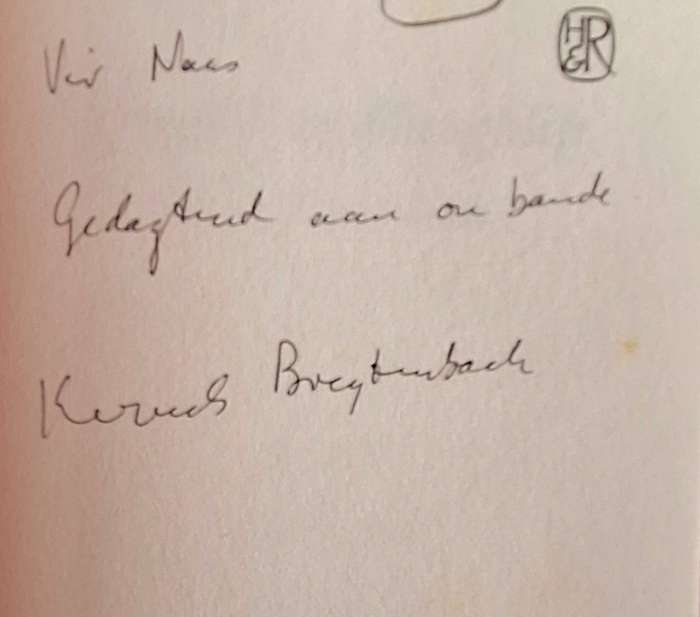 Vir Naas
H&R
Gedagtend aan ou bande
Kerneels Breytenbach